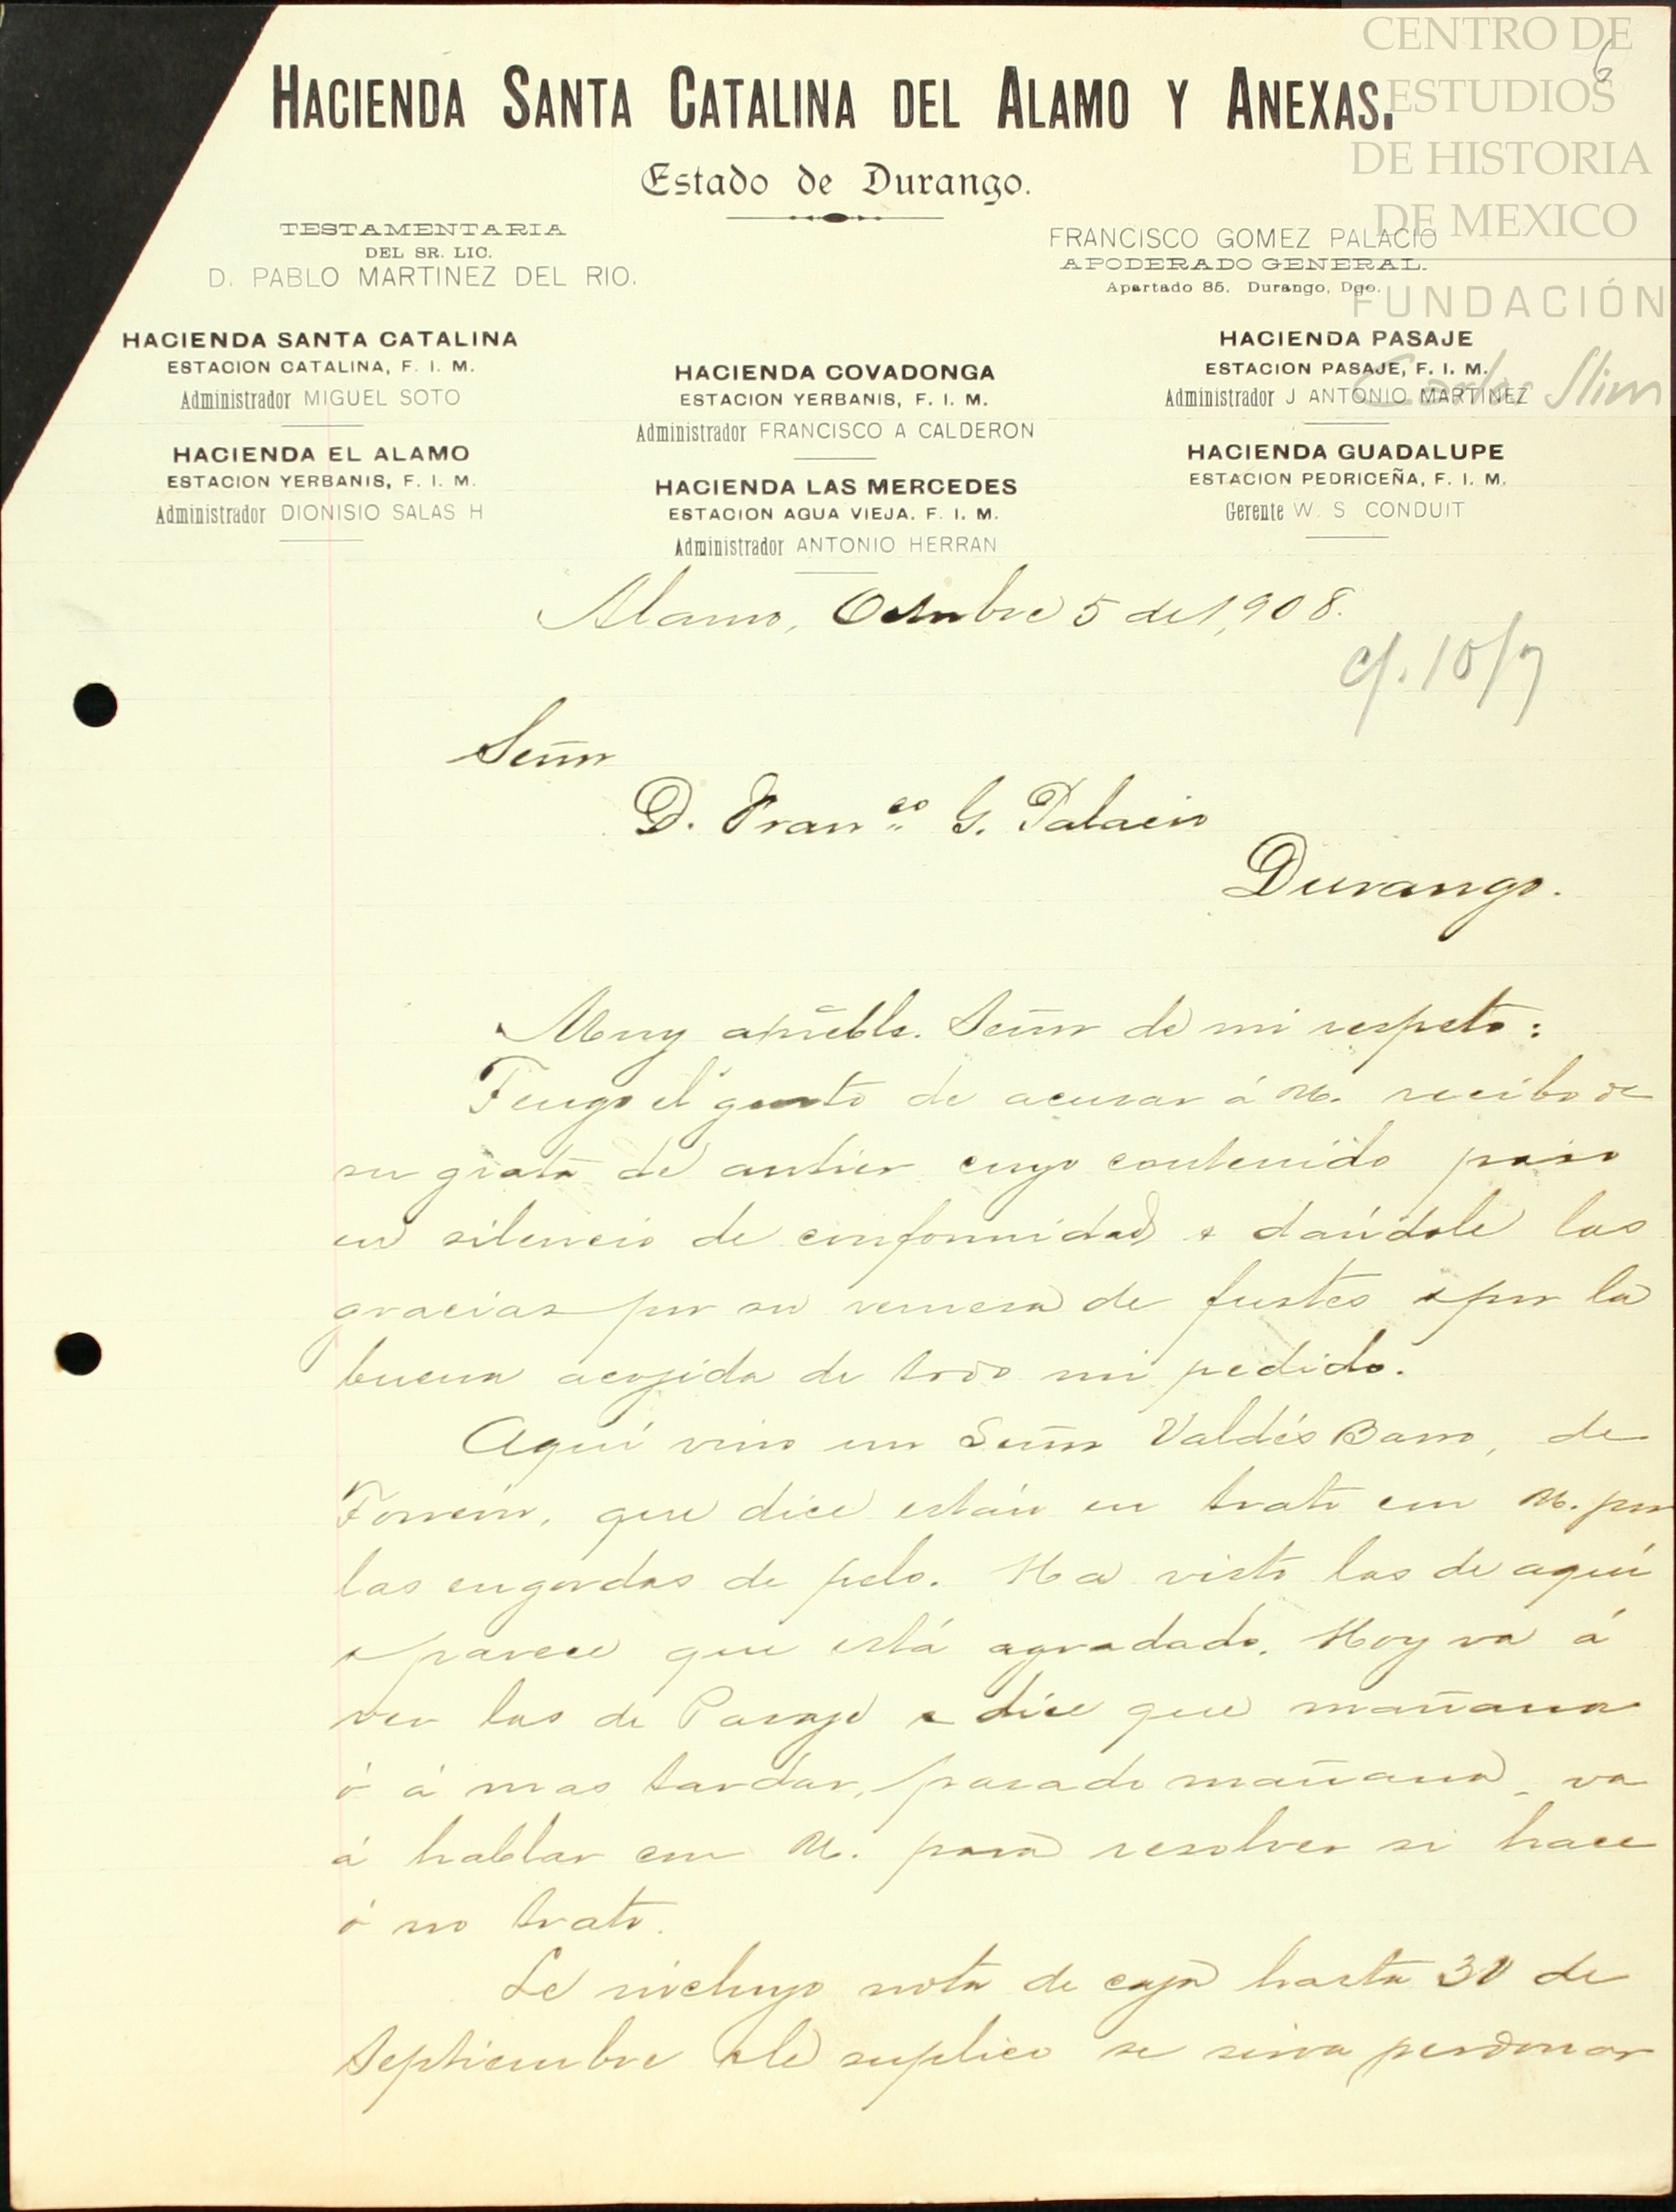 CENTRO DE
ESTUDIOS
DE HISTORIA
DE MEXICO
FUNDACIÓN
Carlos Slim
6
HACIENDA SANTA CATALINA DEL ALAMO Y ANEXAS.
Estado de Durango.
TESTAMENTARIA
DEL SR. LIC.
D. PABLO MARTINEZ DEL RIO.
FRANCISCO GOMEZ PALACIO
APODERADO GENERAL.
Apartado 85. Durango, Dgo.
HACIENDA SANTA CATALINA
ESTACION CATALINA, F. I. M.
Administrador MIGUEL SOTO
HACIENDA EL ALAMO
ESTACION YERBANIS, F. I. M.
Administrador DIONISIO SALAS H
HACIENDA COVADONGA
ESTACION YERBANIS, F. I. M.
Administrador FRANCISCO A CALDERON
HACIENDA LAS MERCEDES
ESTACION AGUA VIEJA. F. I. M.
Administrador ANTONIO HERRAN
HACIENDA PASAJE
ESTACION PASAJE, F. I. M.
Administrador J ANTONIO MARTINEZ
HACIENDA GUADALUPE
ESTACION PEDRICEÑA, F. I. M.
Gerente W. S. CONDUIT
Alamo, Octubre 5 de 1,908.
c/. 10/7
Señor
D. Franco G. Palacio
Durango.
Muy apreble. Señor de mi respeto:
Tengo el gusto de acusar á U. recibo de
su grata de antier cuyo contenido paso
en silencio de conformidad y dándole las
gracias por su remesa de fustes y por la
buena acojida de todo mi pedido.
Aquí vino un Señor Valdés Barro, de
Torreón, que dice están en trato con U. por
las engordas de pelo. Ha visto las de aquí
y parece que está agradado. Hoy va á
ver las de Pasaje y dice que mañana
ó á mas tardar, pasado mañana, va
á hablar con U. para resolver si hace
ó no trato.
Le incluyo nota de caja hasta 30 de
Septiembre y le suplico se sirva perdonar